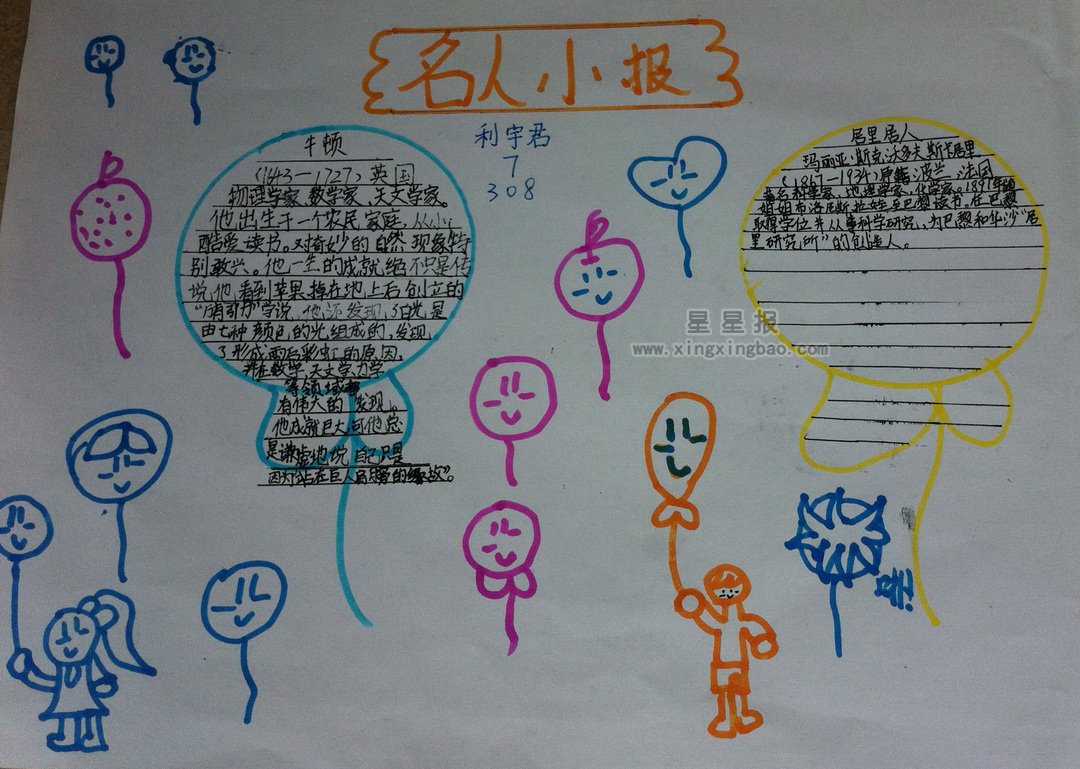 名人小报
利宇君
7
308
牛顿
(1643—1727)英国
物理学家、数学家、天文学家。
他出生于一个农民家庭,从小
酷爱读书。对奇妙的自然现象特
别敢兴。他一生的成就绝不只是传
说,他,看到苹果掉在地上后创立的
“万引力”学说,他还发现,了白光是
由七种颜色的光组成的,发现
了形成雨后彩虹的原因。
并在数学、天文学、力学
等领域
有伟大的发现。
他成就巨大,可他总
是谦虚地说自己只是
因为“站在巨人肩膀的缘故”。
居里居人
玛丽亚·斯克沃多夫斯卡居里
(1867—1934)原籍:波兰、法国
著名物理学家、化学家。1891年随
姐姐布洛尼斯拉娃至巴黎读书,在巴黎
取得学位并从事科学研究、为巴黎和华沙“居
里研究所”的创造人。
星星报
www.xingxingbao.com